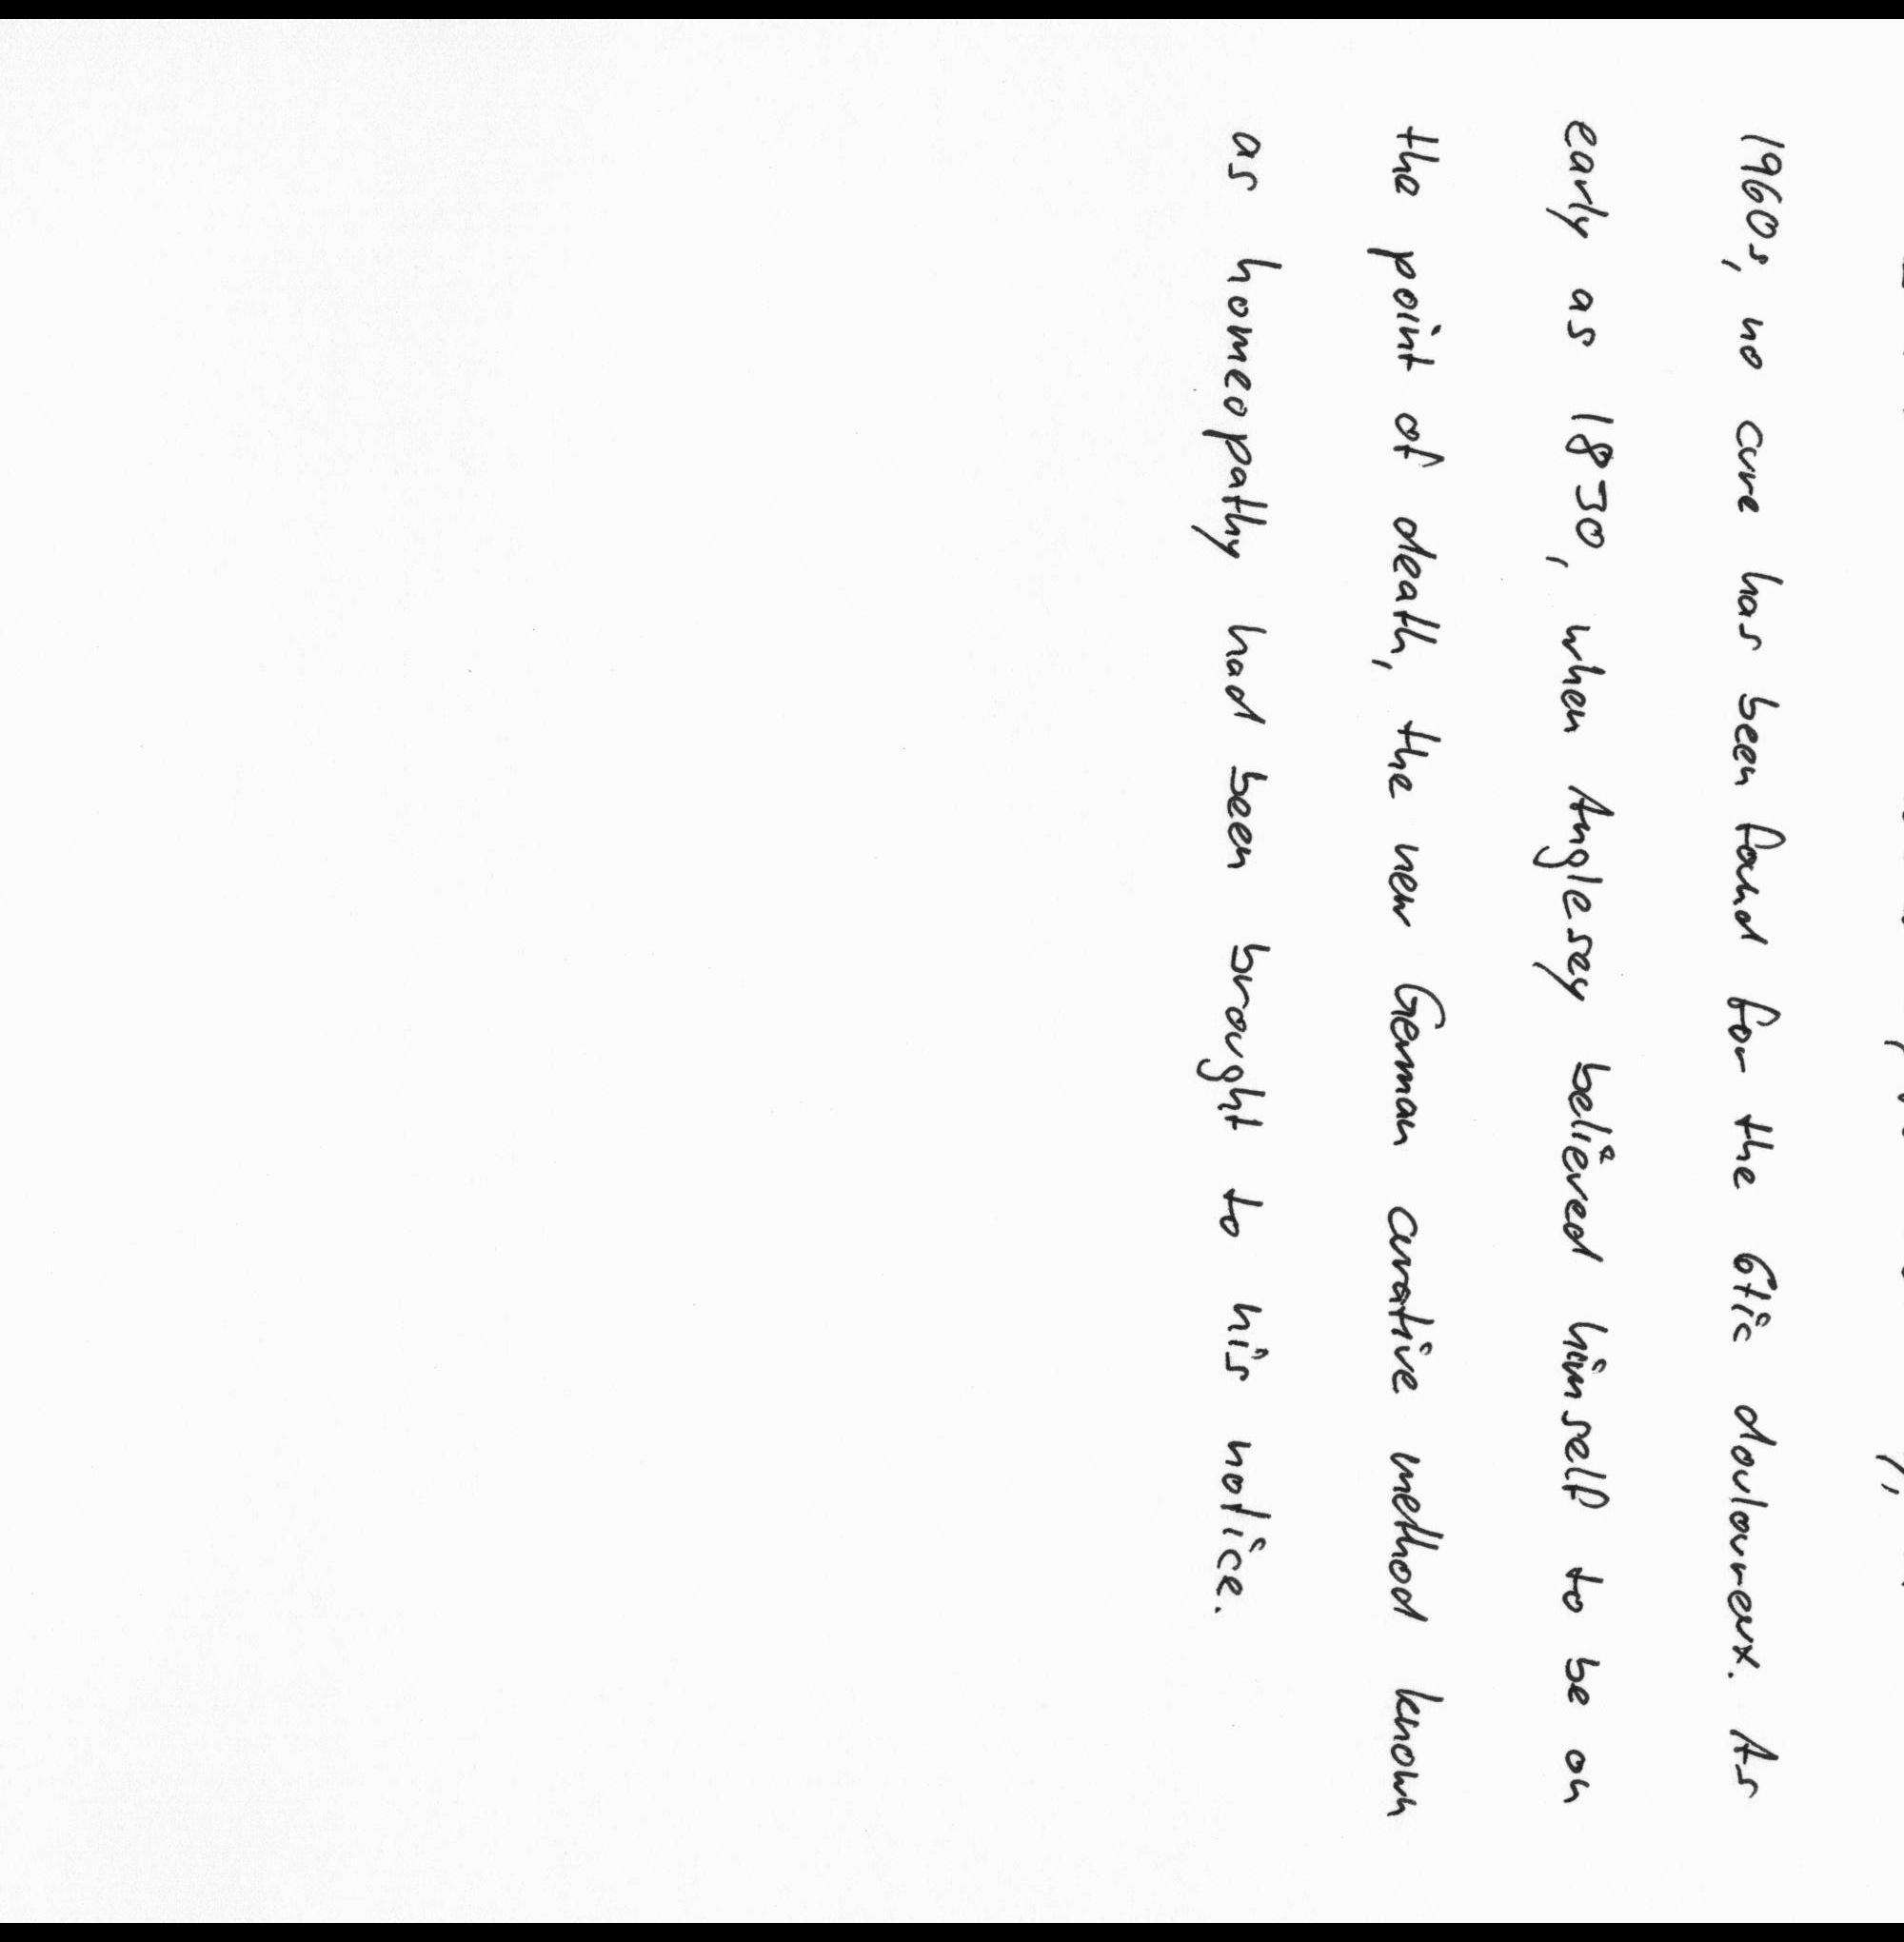 1960s, no cure has been found for the 6tic douloureux. As
early as 1830, when Anglesey believed himself to be on
the point of death, the new German curative method known
as homeopathy had been brought to his notice.